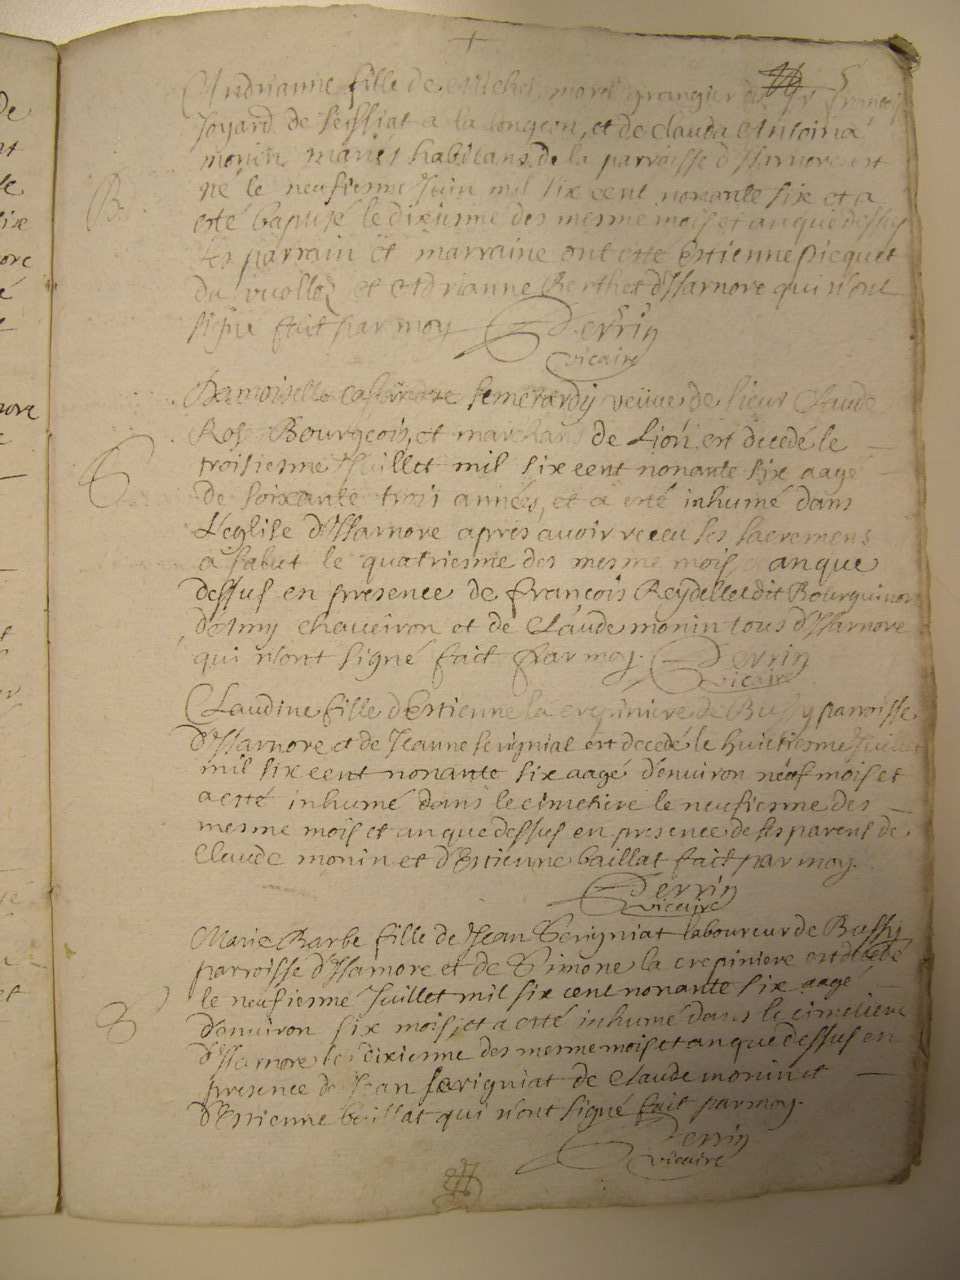 Andrianne fille de Michel morel grangier du Sr françois
Joyard de seissiat a la longeon, et de clauda Antoina
monin mariés habitans de la parroisse d'Isarnore est
né le neufiesme Juin mil six cent nonante six et a
B. esté baptisé le dixiesme des mesme mois et an que dessus
ses parrain et marraine ont esté Estienne picquet
du et Adrianne Berthet d'Isarnore qui n'ont
signé fait par moy Perrin
vicaire
Damoiselle veüve de sieur Claude
Bourgeois, et marchant de Lion est decedé le
S. troisiesme Juillet mil six cent nonante six aagé
de soixante trois années, et a esté inhumé dans
L'eglise d'Isarnore apres avoir receu ses sacremens
a salut le quatriesme des mesme mois et an que
dessus en presence de françois Reydellet dit Bourguinon
d'Amy chaveiron et de Claude monin tous d'Isarnore
qui n'ont signé fait par moy. Perrin
vicaire
Claudine fille d'Estienne la crepiniere de Bussy parroisse
d'Isarnore et de Jeanne serignial est decedé le huictiesme Juillet
mil six cent nonante six aagé d'environ neuf mois et
a esté inhumé dans le cimetiere le neufiesme des
mesme mois et an que dessus en presence de ses parens de
Claude monin et d'Estienne baillat fait par moy.
Perrin
vicaire
Marie Barbe fille de Jean Serigniat laboureur de Bussy
parroisse d'Isarnore et de Simone la crepiniere est decedé
le neufiesme Juillet mil six cent nonante six aagé
S d'environ six mois, et a esté inhumé dans le cimetiere
d'Isarnore le dixiesme des mesme mois et an que dessus en
presence de Jean serigniat de Claude monin et
d'Estienne baillat qui n'ont signé fait par moy.
Perrin
vicaire